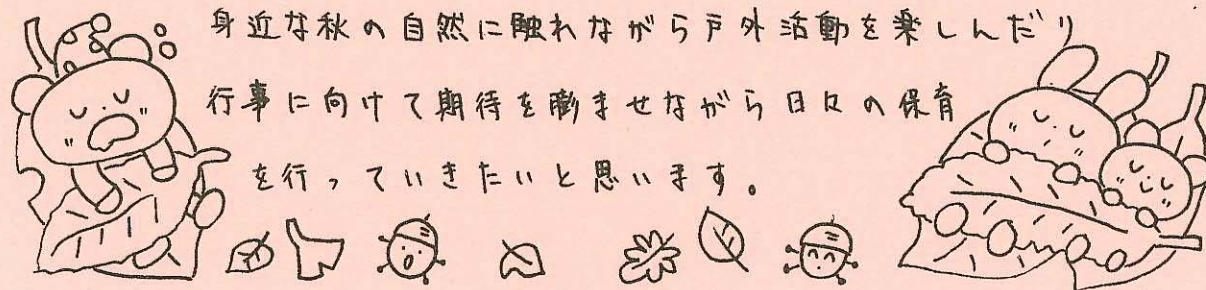 身近な秋の自然に触れながら戸外活動を楽しんだり
行事に向けて期待を膨ませながら日々の保育
を行っていきたいと思います。